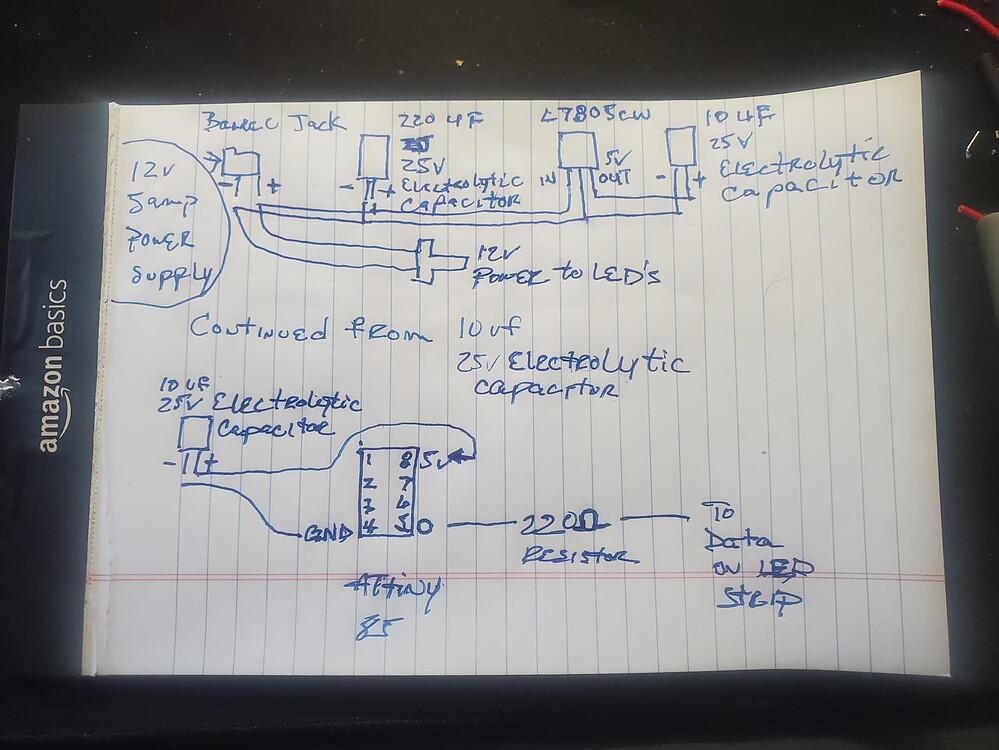 Barrel Jack
- +
12v
5amp
Power
Supply
220 uF
25V
Electrolytic
Capacitor
- +
+
L7805CW
5V
IN OUT
10 uF
25V
Electrolytic
Capacitor
- +
12v
Power to LED's
Continued from 10 uf
25v Electrolytic
capacitor
10 uF
25V Electrolytic
Capacitor
- +
1 8 5v
2 7
3 6
GND 4 5 0
220Ω
Resistor
To
Data
on LED
Strip
ATtiny
85
amazon basics